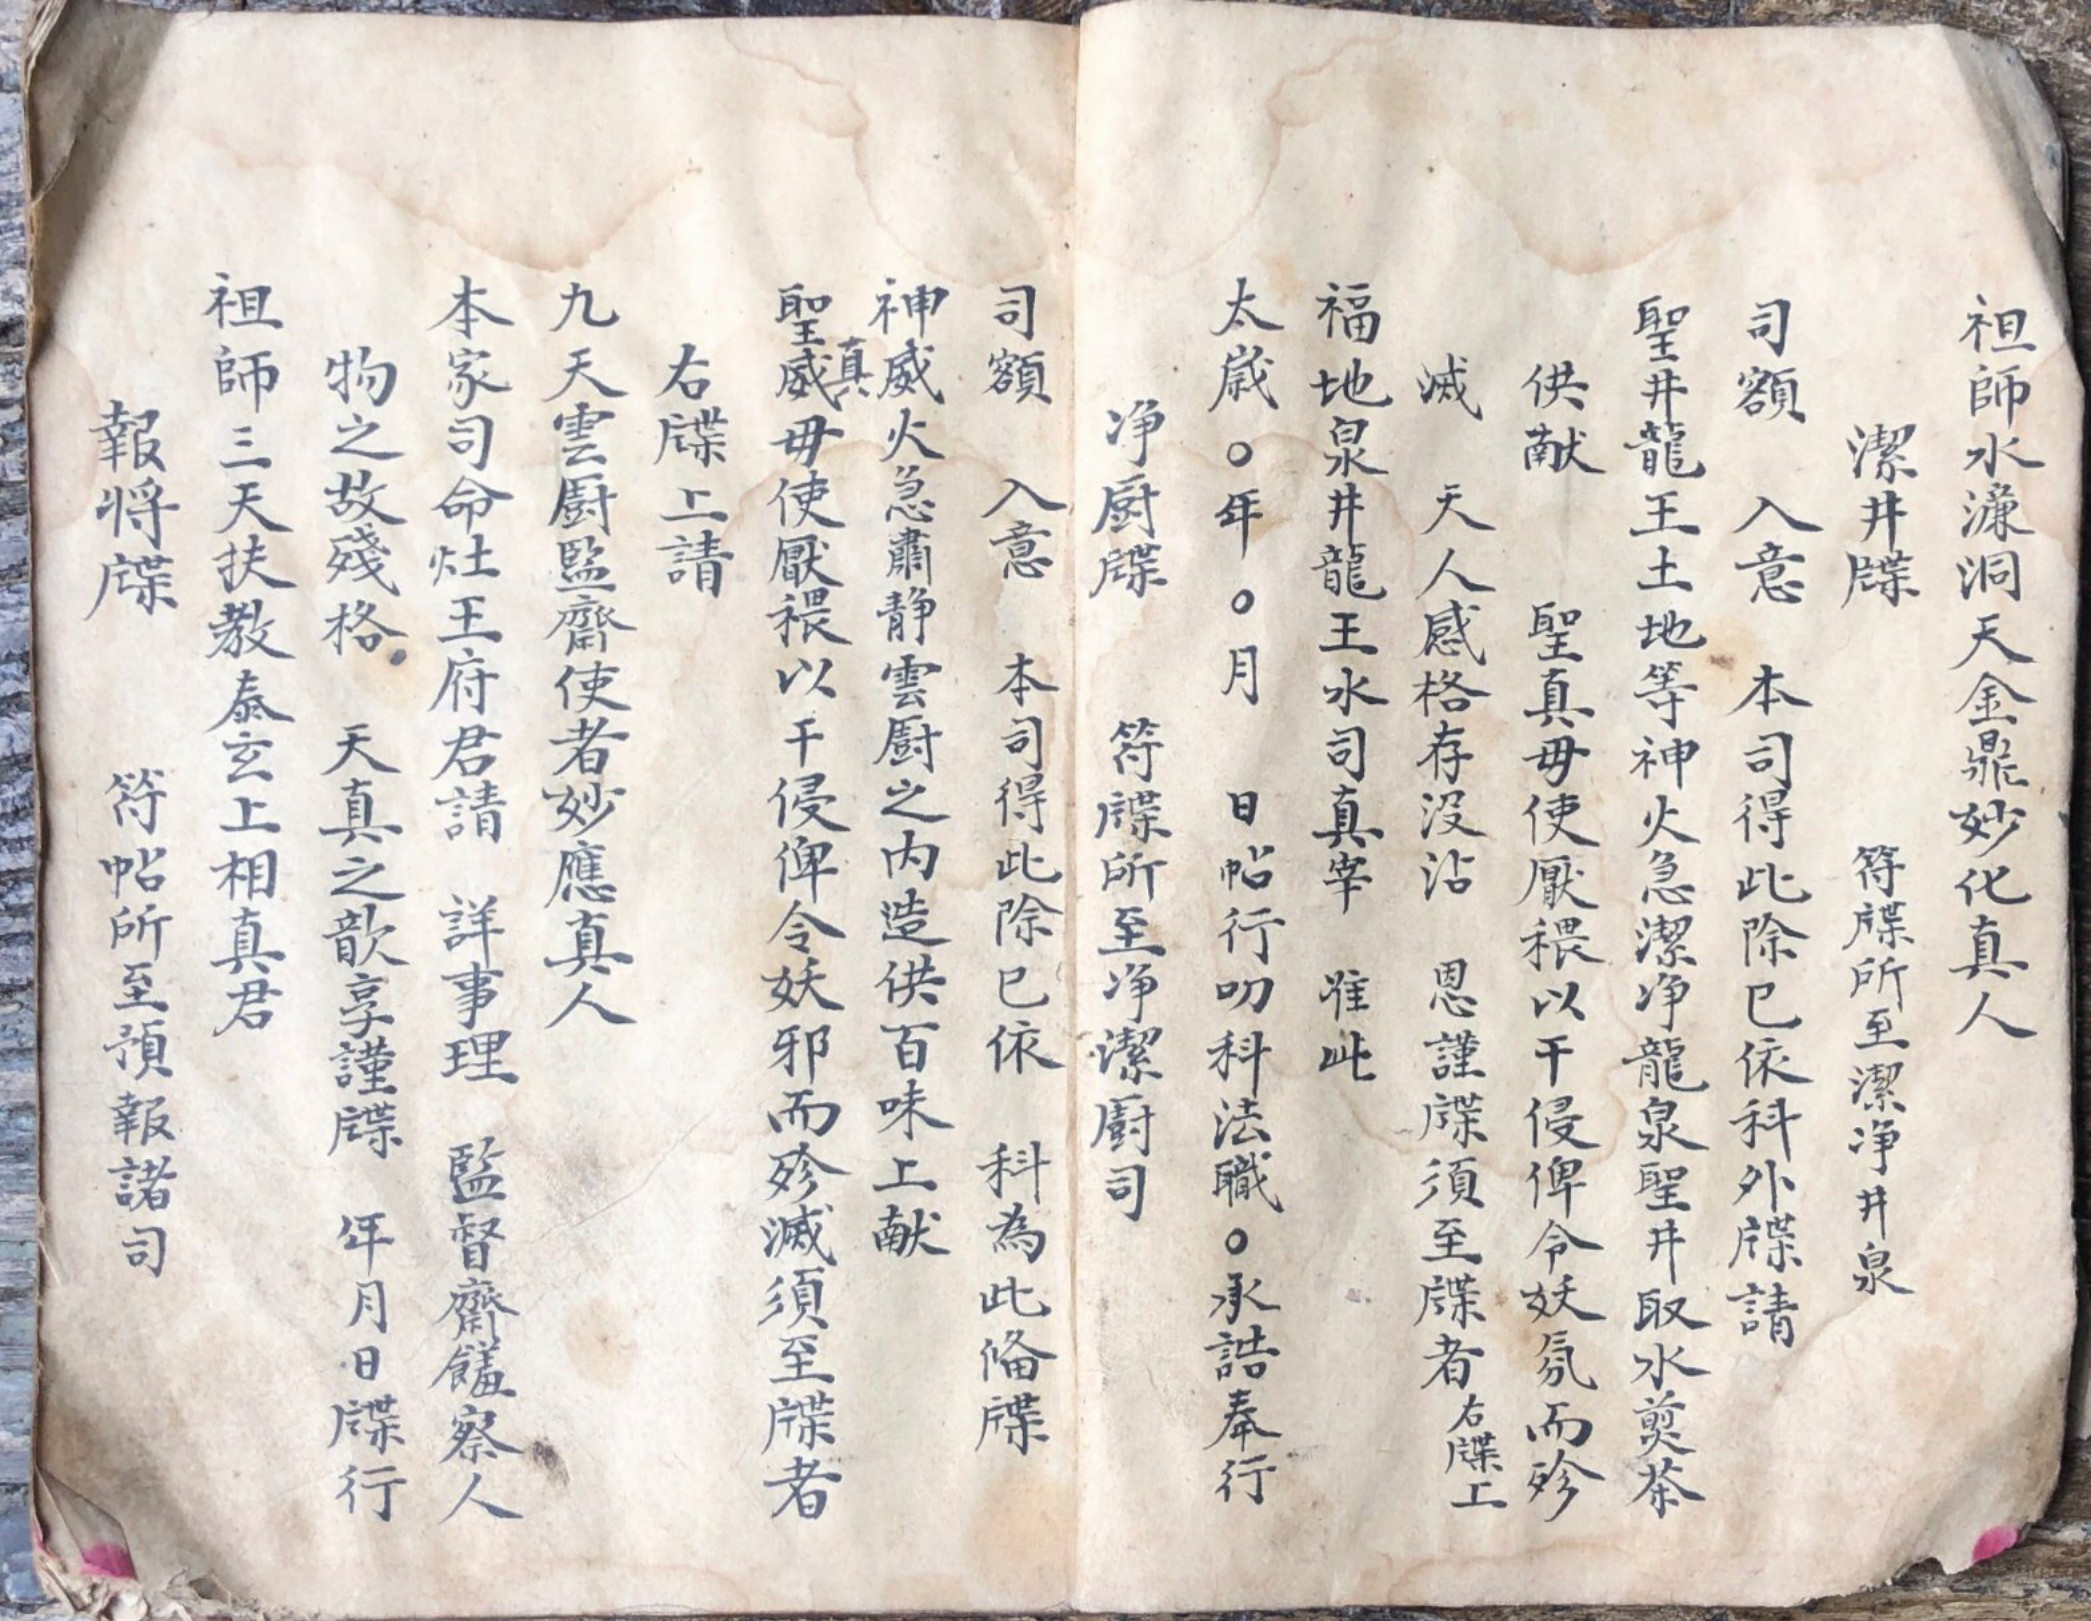 祖師水濂洞天金鼎妙化真人
潔井牒 符牒所至潔净井泉
司額 入意 本司得此除已依科外牒請
聖井龍王土地等神火急潔净龍泉聖井取水煎茶
供献 聖真毋使厭穢以干侵俾令妖氛而殄
滅 天人感格存没沾 恩謹牒須至牒者 右牒上
福地泉井龍王水司真宰 准此
太歲○年○月 日帖行叨科法職○承誥奉行
净厨牒 符牒所至净潔厨司
司額 入意 本司得此除已依 科為此俻牒
神威火急肅静雲厨之内造供百味上献
聖真威毋使厭穢以干侵俾令妖邪而殄滅須至牒者
右牒上請
九天雲厨監齋使者妙應真人
本家司命灶王府君請 詳事理 監督齋饈察人
物之故殘格 天真之歆享謹牒 年月日牒行
祖師三天扶教泰玄上相真君
報将牒 符帖所至預報諸司